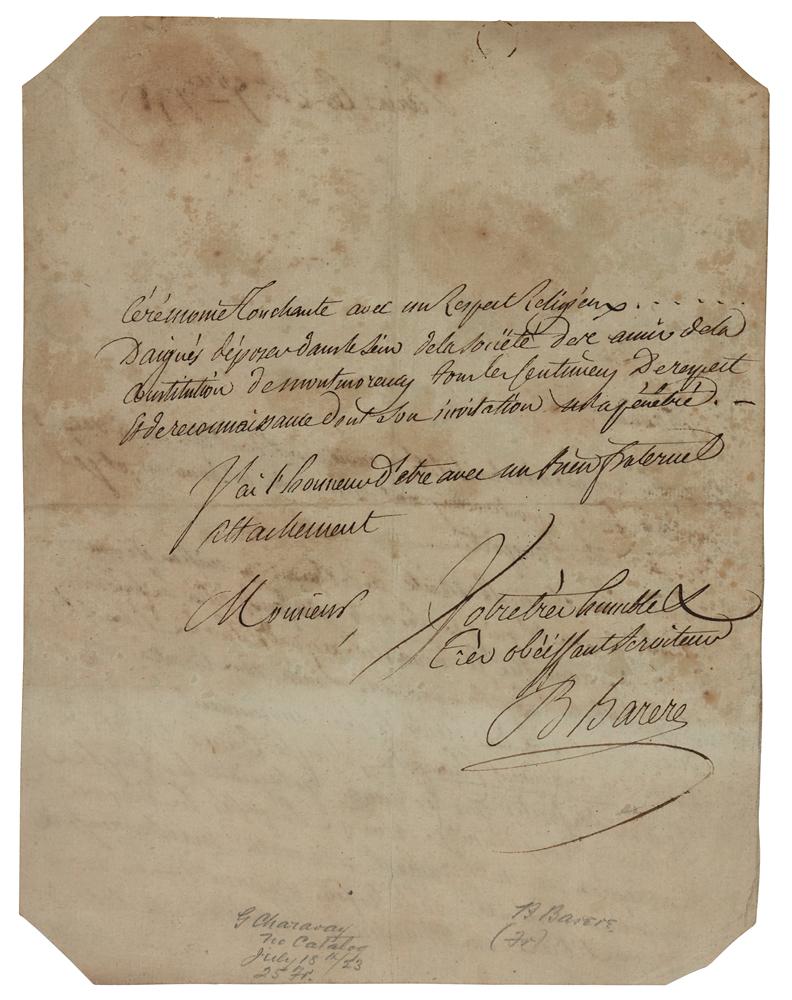 Cérémonie touchante avec un Respect Religieux.......
Daignés déposer dans le sein de la société des amis de la
Constitution de montmorency tous les sentimens De respect
et de reconnaissance dont son invitation m'a pénétré. —
J'ai l'honneur d'etre avec un bien fraternel
attachement
Monsieur,
Votre très humble &
très obéissant serviteur
B Barere
G Charavay
no Catalog
July 18th/23
25 Fr.
B Barere.
(Fr)